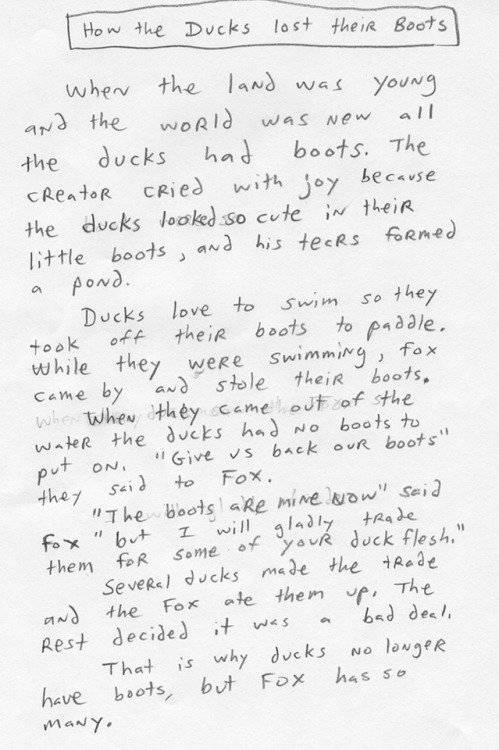 How the Ducks lost their Boots
When the land was young
and the world was new all
the ducks had boots. The
creator cried with joy because
the ducks looked so cute in their
little boots, and his tears formed
a pond.
Ducks love to swim so they
took off their boots to paddle.
While they were swimming, fox
came by and stole their boots.
When they came out of the
water the ducks had no boots to
put on. "Give us back our boots"
they said to Fox.
"The boots are mine now" said
fox "but I will gladly trade
them for some of your duck flesh."
Several ducks made the trade
and the Fox ate them up. The
rest decided it was a bad deal.
That is why ducks no longer
have boots, but Fox has so
many.